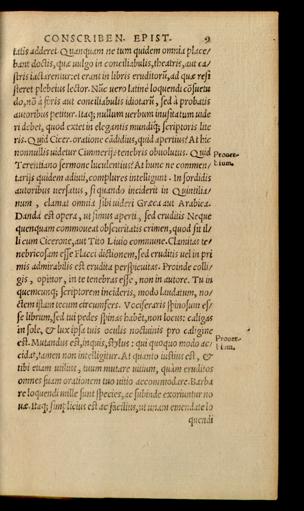 CONSCRIBEN. EPIST. 9
tatis adderet. Quanquam ne tum quidem omnia place/
bant doctis, quæ vulgo in conciliabulis, theatris, aut ca/
stris iactarentur: et erant in libris eruditorū, ad quæ resi
steret plebeius lector. Nūc uero latinè loquendi cōsuetu
do, nō à foris aut conciliabulis idiotarū, sed à probatis
autoribus petitur. Itaq; nullum uerbum inusitatum uide
ri debet, quod extet in elegantis mundiq; scriptoris lite
ris. Quid Cicer. oratione cādidius, quid apertius? At hic
nonnullis uidetur Cimmerijs tenebris obuolutus. Quid
Terentiano sermone luculentius? At hunc ne commen/
tarijs quidem adiuti, complures intelligunt. In sordidis
autoribus uersatus, si quando inciderit in Quintilia/
num, clamat omnia sibi uideri Græca aut Arabica.
Danda est opera, ut simus aperti, sed eruditis. Neque
quenquam commoueat obscuritatis crimen, quod sit il/
li cum Cicerone, aut Tito Liuio commune. Clamitas te/
nebricosam esse Flacci dictionem, sed eruditis uel in pri
mis admirabilis est erudita perspicuitas. Proinde colli/
gis, opinor, in te tenebras esse, non in autore. Tu in
quemcunq; scriptorem incideris, modo laudatum, no/
ctem istam tecum circumfers. Vociferaris spinosum es/
se librum, sed tui pedes spinas habēt, non locus: caligas
in sole, & lux ipsa tuis oculis noctuinis pro caligine
est. Mutandus est, inquis, stylus: qui quoquo modo ac/
cidat, tamen non intelligitur. At quanto iustius est, &
tibi etiam utilius, tuum mutare uitium, quàm eruditos
omnes suam orationem tuo uitio accommodare. Barba
re loquendi mille sunt species, ac subinde exoriuntur no
uæ. Itaq; simplicius est ac facilius, ut unam emendate lo
quendi
Prouer/
bium.
Prouer/
bium.